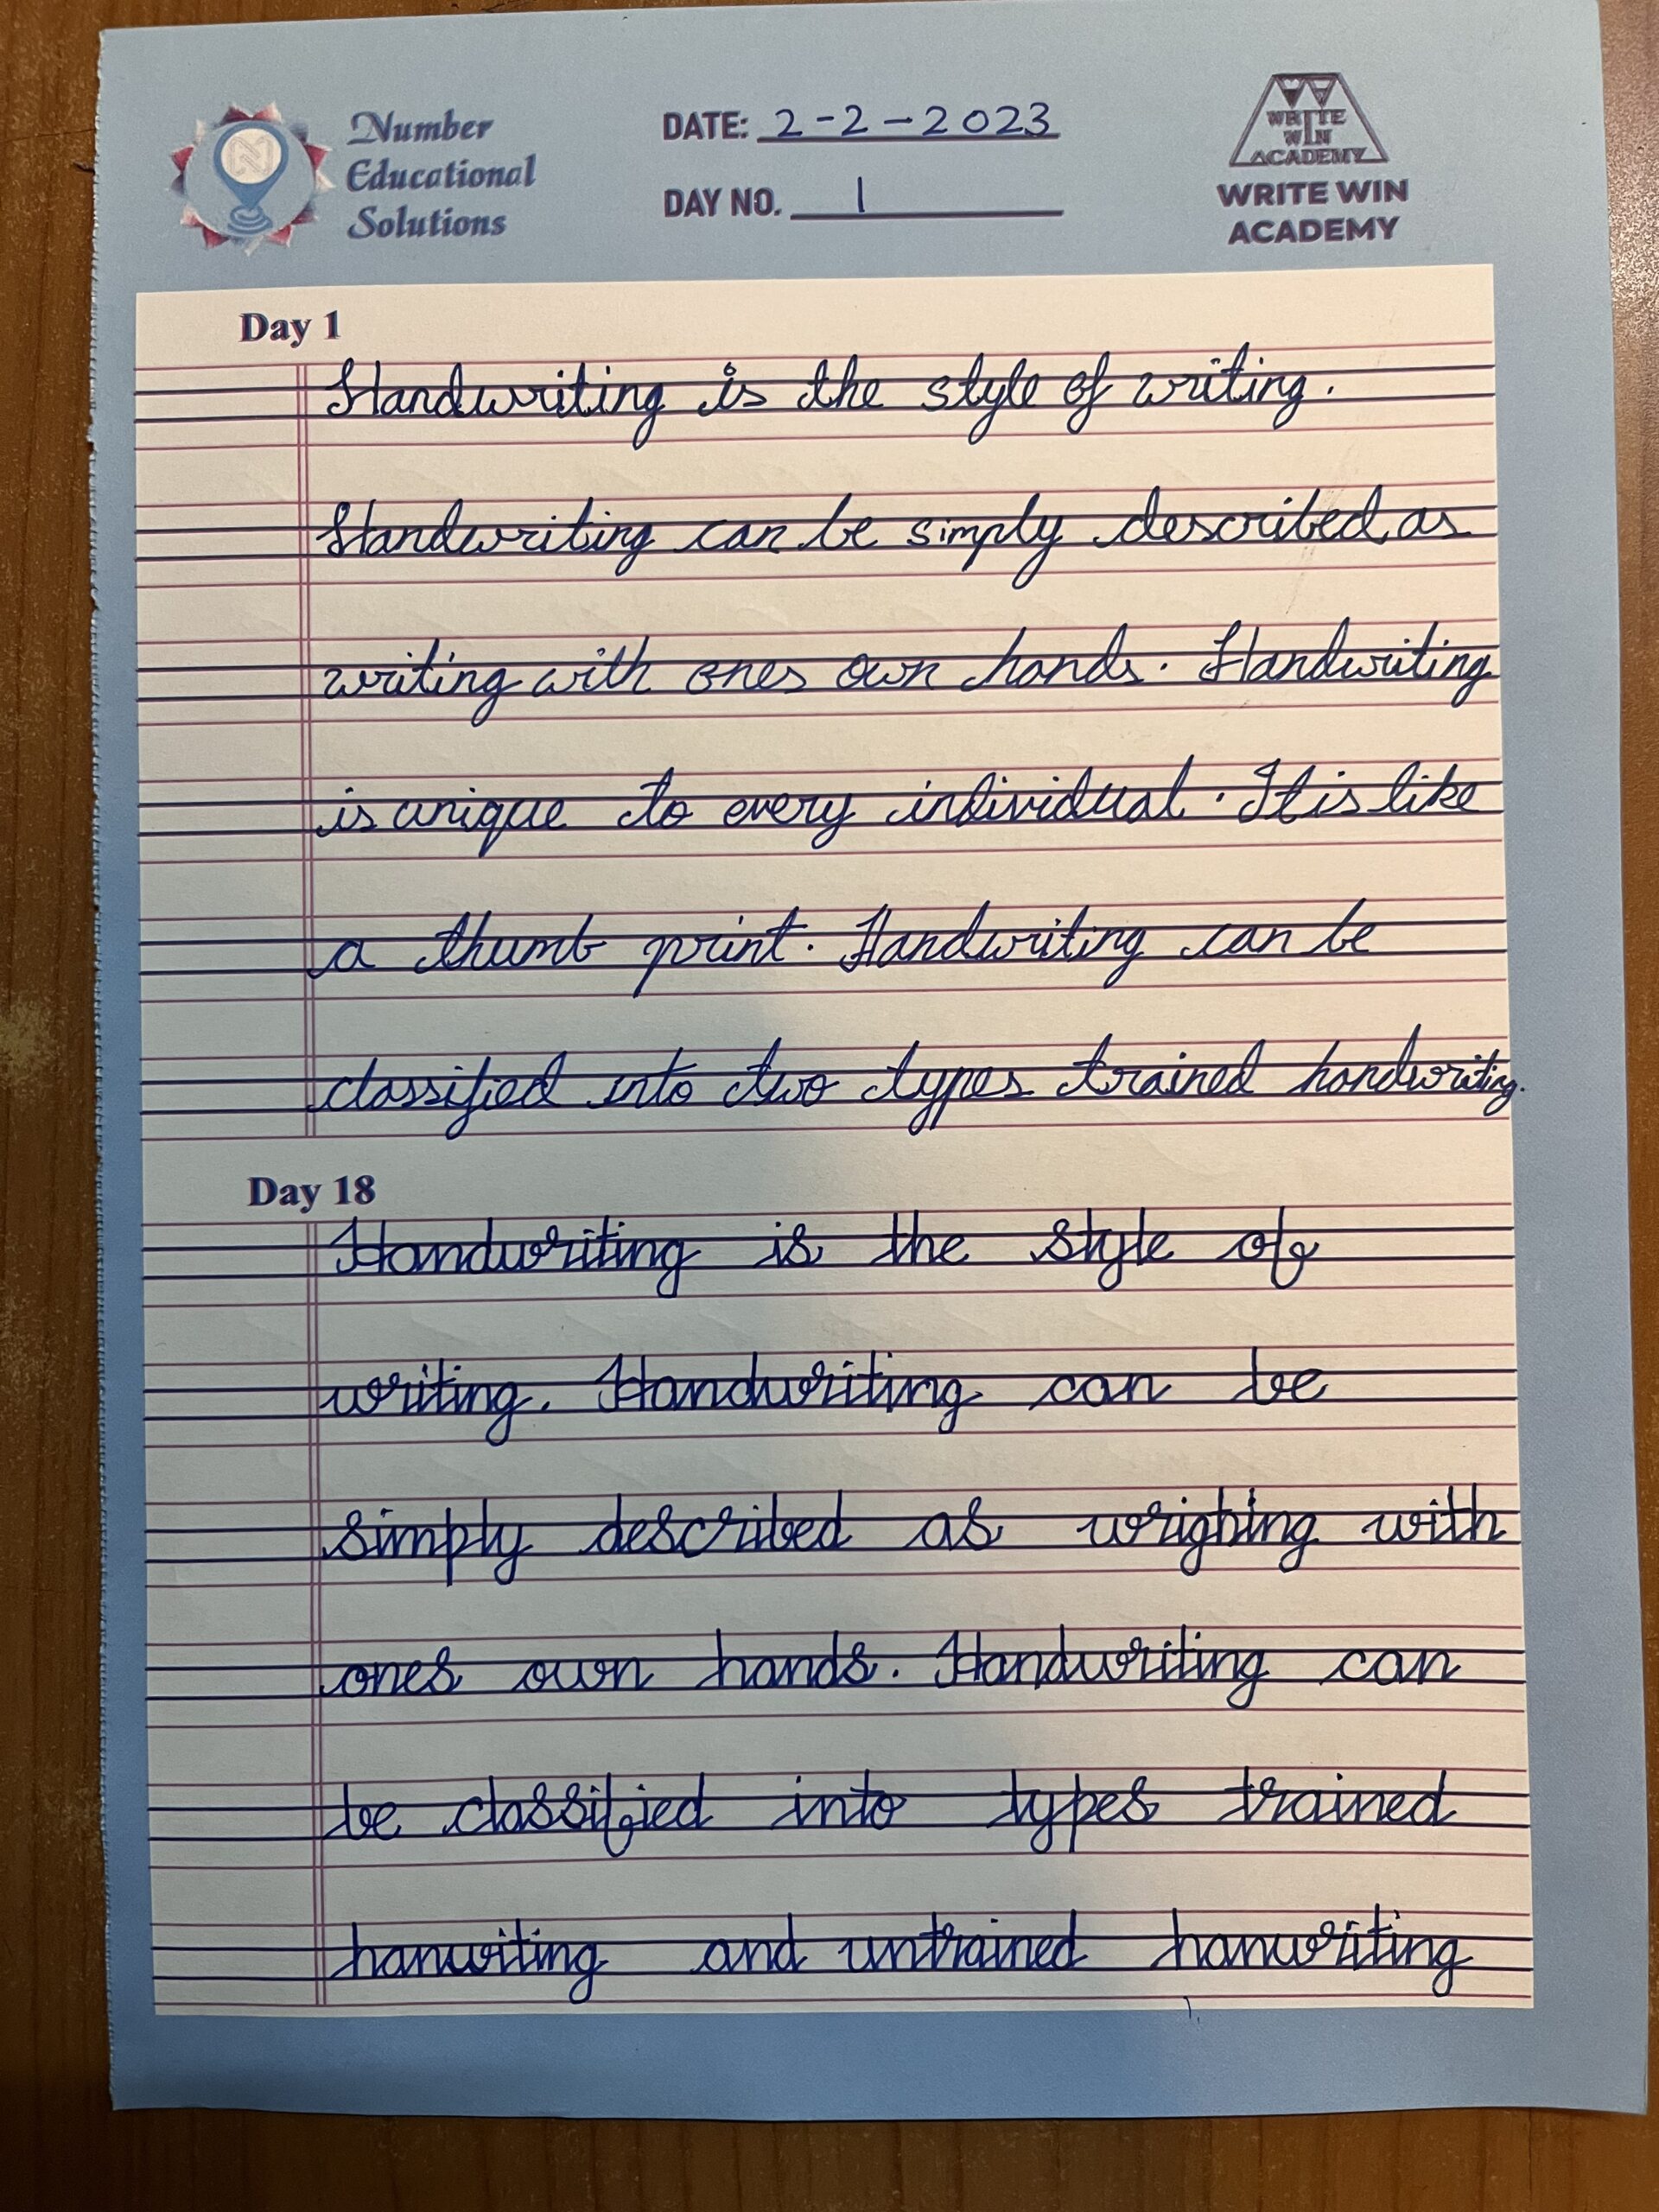 Number
Educational
Solutions
DATE: 2-2-2023
DAY NO. 1
WRITE
WIN
ACADEMY
WRITE WIN
ACADEMY
Day 1
Handwriting is the style of writing.
Handwriting can be simply described as
writing with ones own hands. Handwriting
is unique to every individual. It is like
a thumb print. Handwriting can be
classified into two types trained handwriting.
Day 18
Handwriting is the style of
writing. Handwriting can be
simply described as wrighing with
ones own hands. Handwriting can
be classified into types trained
hanwiting and untrained hanwriting